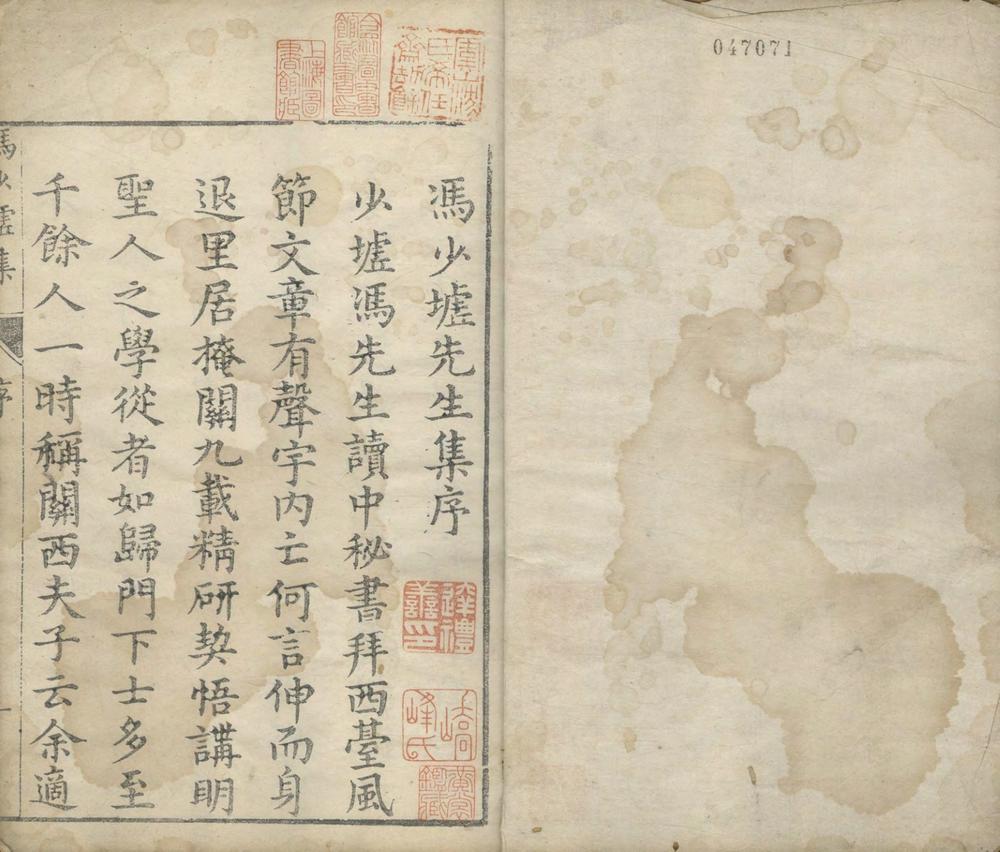 047071
馮少墟先生集序
少墟馮先生讀中秘書拜西臺風
節文章有聲宇内亡何言伸而身
退里居掩關九載精研契悟講明
聖人之學從者如歸門下士多至
千餘人一時稱關西夫子云余適
馮少墟集
序
一
上海圖書館藏